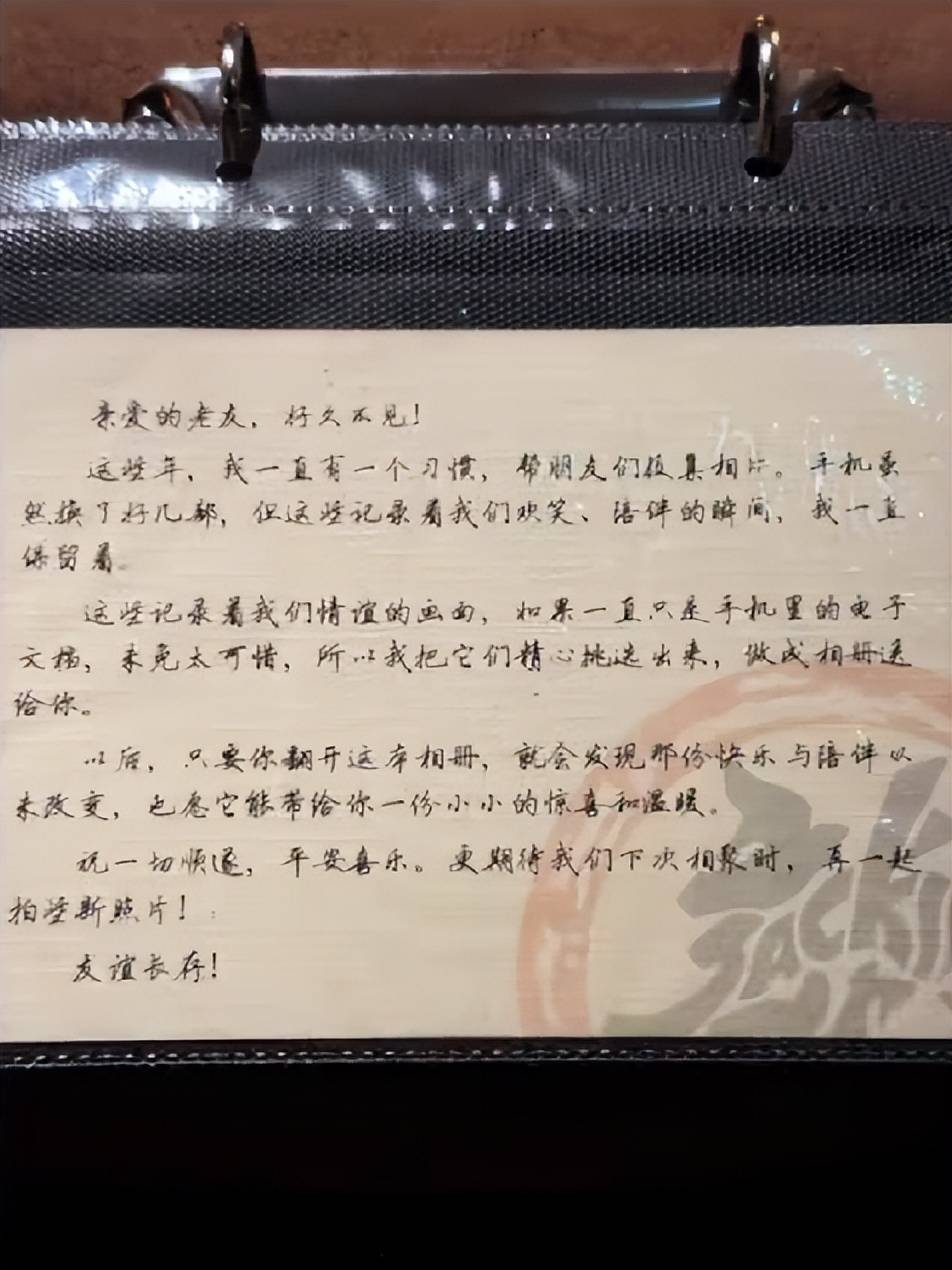 亲爱的老友，好久不见！
这些年，我一直有一个习惯，帮朋友们收集相片。手机虽
然换了好几部，但这些记录着我们欢笑、陪伴的瞬间，我一直
保留着。
这些记录着我们情谊的画面，如果一直只是手机里的电子
文档，未免太可惜，所以我把它们精心挑选出来，做成相册送
给你。
以后，只要你翻开这本相册，就会发现那份快乐与陪伴从
未改变，也愿它能带给你一份小小的惊喜和温暖。
祝一切顺遂，平安喜乐。更期待我们下次相聚时，再一起
拍些新照片！
友谊长存！
JACKI